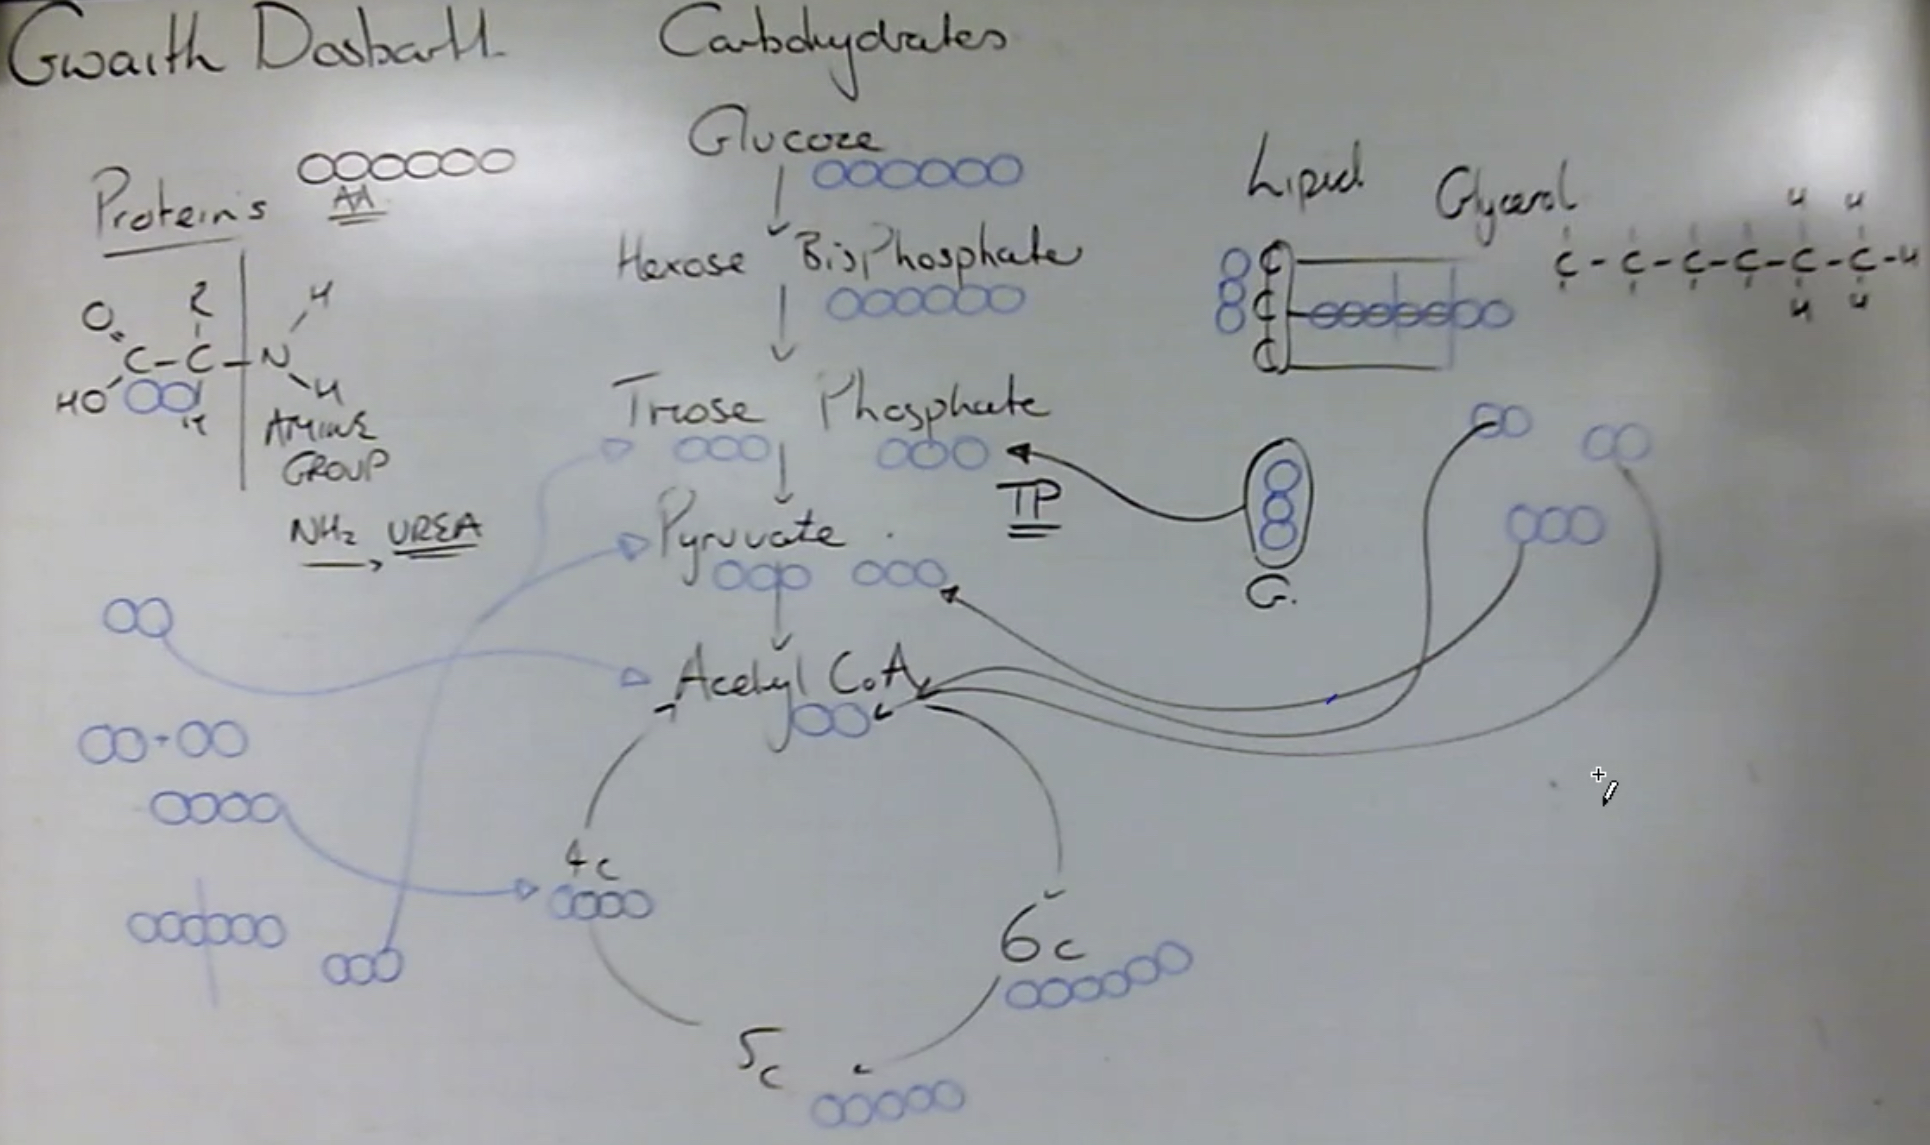 Gwaith Dosbarth
Carbohydrates
Glucoze
Proteins
AA
Hexose BisPhosphate
Lipid
Glycerol
H H
C - C - C - C - C - C - H
H H
C
C
C
R
O
H
C - C - N
HO
H
H
AMINE
GROUP
NH2 UREA
Triose Phosphate
TP
G.
Pyruvate
Acetyl CoA
4c
6c
5c